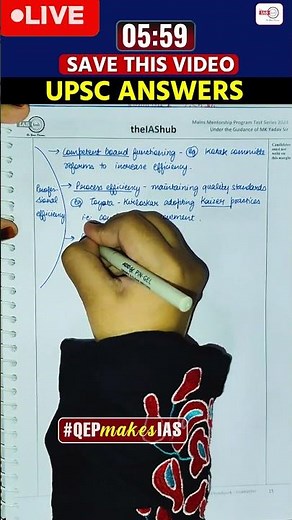 LIVE
05:59
SAVE THIS VIDEO
UPSC ANSWERS
theIAShub
Mains Mentorship Program Test Series 2024
Under the Guidance of MK Yadav Sir
Candidates must not write on this margin
→ Competent board functioning - eg Kotak committee
reforms to increase efficiency.
→ Process efficiency - maintaining quality standards
Profes-
sional
efficiency
eg Toyota-Kirloskar adopting Kaizen practices
i.e.
#QEPmakesIAS